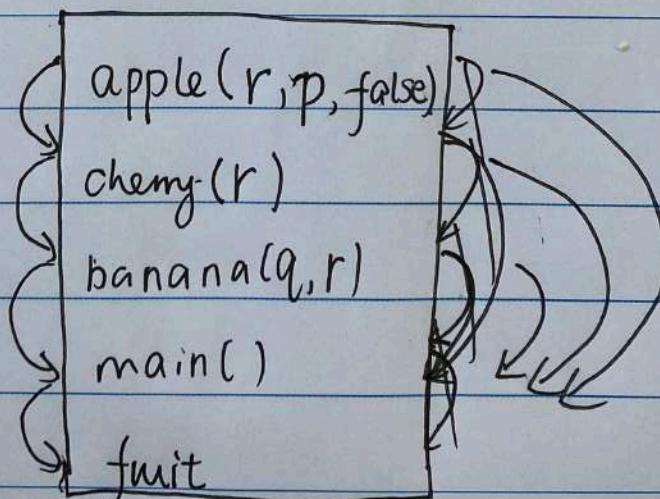 apple(r,p,false)
cherry(r)
banana(q,r)
main()
fruit